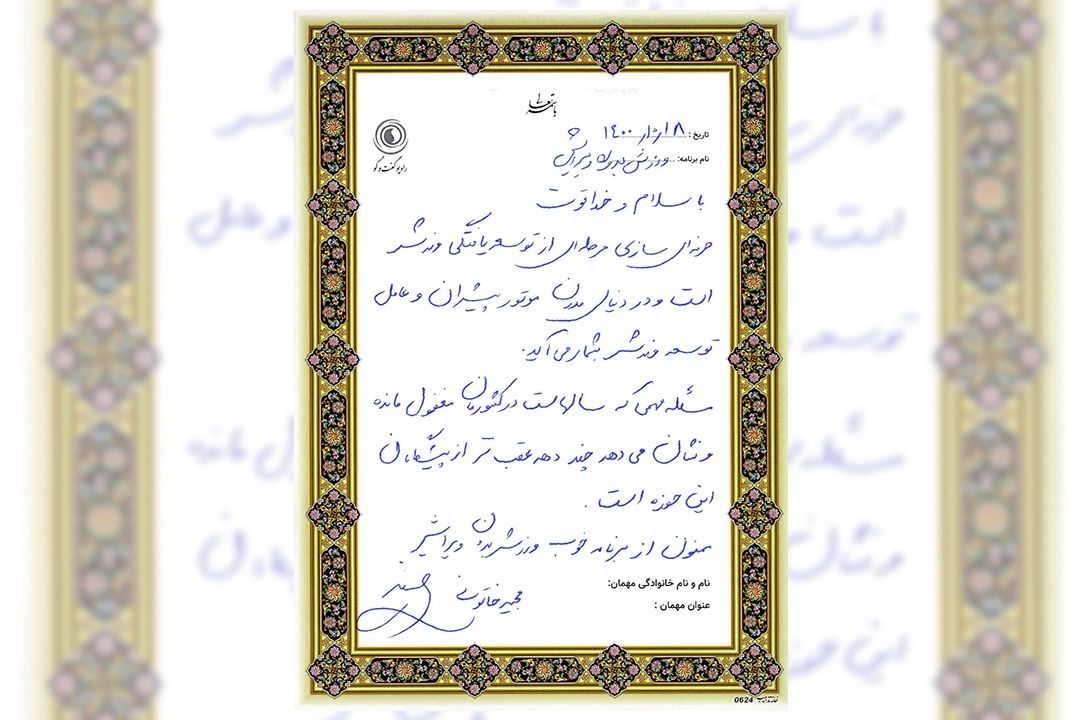 باسمه تعالی
رادیو گفت و گو
تاریخ: ۱۴۰۰/ /۱۸
نام برنامه: ورزش بدون ویرایش
با سلام و خداقوت
حرفه‌ای سازی مرحله‌ای از توسعه یافتگی ورزش
است و در دنیای مدرن موتور پیشران و عامل
توسعه ورزش بشمار می‌آید.
مسئله مهمی که سالهاست در کشورمان مغفول مانده
و نشان می‌دهد چند دهه عقب تر از پیشگامان
این حوزه است.
ممنون از برنامه خوب ورزش بدون ویرایش
نام و نام خانوادگی مهمان:
مجید خاتونی
عنوان مهمان :
0624